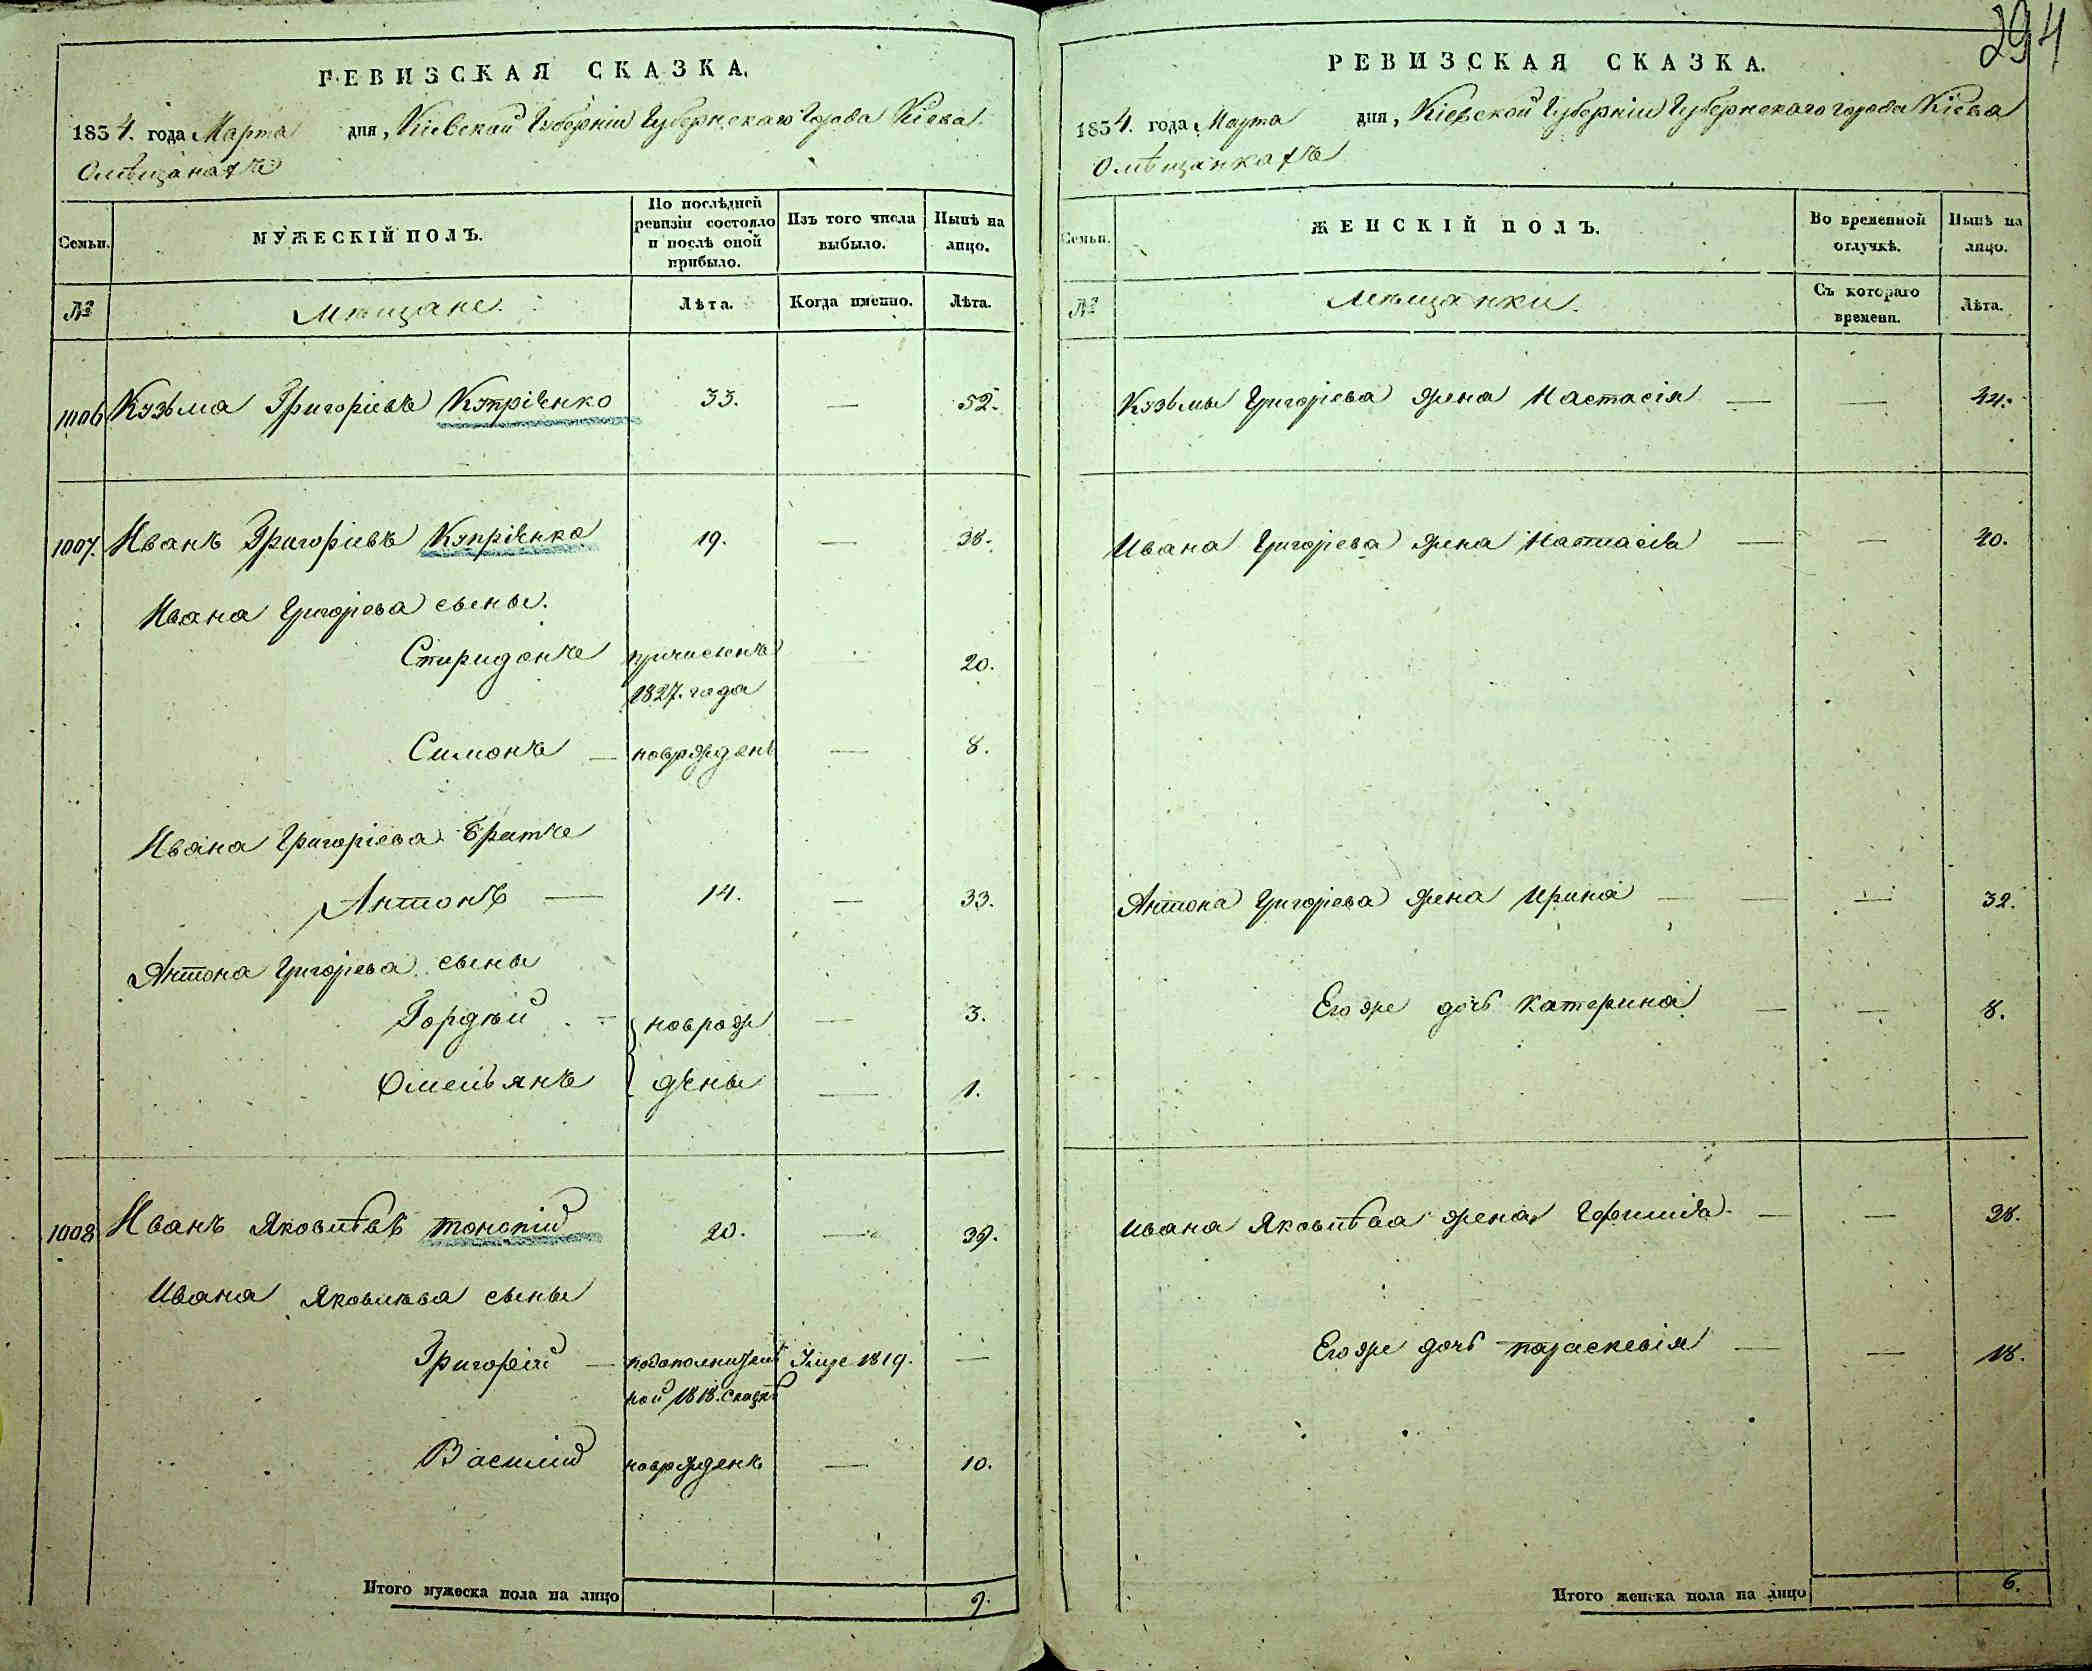 294
РЕВИЗСКАЯ СКАЗКА.
1834. года Марта дня, Кіевской Губерніи Губернскаго Города Кіева
О мѣщанахъ
Семьи. МУЖЕСКІЙ ПОЛЪ. По послѣдней ревизіи состояло и послѣ оной прибыло. Изъ того числа выбыло. Нынѣ на лицо.
№ Мѣщане. Лѣта. Когда именно. Лѣта.
1006 Кузьма Григорьевъ Купріенко 33. — 52.
1007. Иванъ Григорьевъ Купріенко 19. — 38.
Ивана Григорьева сыны.
Спиридонъ причисленъ 1827. года — 20.
Симонъ — новрожденъ — 8.
Ивана Григоріева братъ
Антонъ — 14. — 33.
Антона Григорьева сыны
Гордѣй — новрож — 3.
Омельянъ дены — 1.
1008 Иванъ Яковлѣвъ 20. — 39.
Ивана Яковлѣва сыны
Григорій — подополнитель ной 1818. сказкѣ Умре 1819. —
Василій новрожденъ — 10.
Итого мужеска пола на лицо 9.
РЕВИЗСКАЯ СКАЗКА.
1834. года Марта дня, Кіевской Губерніи Губернскаго города Кіева
О мѣщанкахъ
Семьи. ЖЕНСКІЙ ПОЛЪ. Во временной отлучкѣ. Нынѣ на лицо.
№ Мѣщанки. Съ котораго времени. Лѣта.
Кузьмы Григорьева жена Настасія — — 44.
Ивана Григорьева жена Настасія — — 20.
Антона Григорьева жена Ирина — — — 32.
Его же дочь Катерина — — 8.
Ивана Яковлѣва жена — — 38.
Его же дочь Параскевія — — 18.
Итого женска пола на лицо 6.